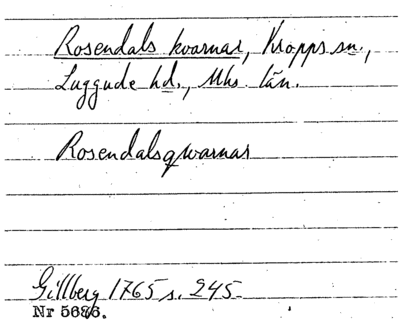 Rosendals kvarnar, Kropps sn.,
Luggude hd., Mhs. län.
Rosendalsqwarnar
Gillberg 1765 s. 245.
Nr 5686.